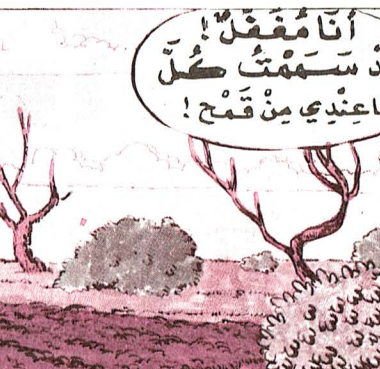 أَنَا مُغَفَّلٌ!
سَمَمْتُ كُلَّ
عِنْدِي مِنْ قَمْحٍ!